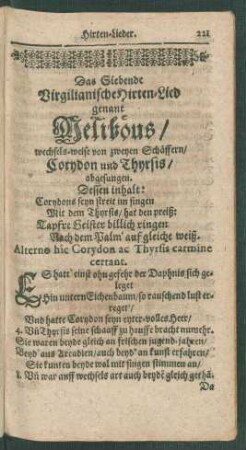 Hirten-Lieder. 221
Das Siebende
Virgilianische Hirten-Lied
genant
Melibôus/
wechsels-weise von zweyen Schäffern/
Corydon und Thyrsis/
abgesungen.
Dessen inhalt:
Corydons seyn streit im singen
Mit dem Thyrsis/ hat den preiß:
Tapfre Geister billich ringen
Nach dem Palm' auf gleiche weiß.
Alterno hic Corydon ac Thyrsis carmine
certant.
ES hatt' einst ohn gefehr der Daphnis sich ge-
leget
Hin untern Eichenbaum/ so rauschend lust er-
reget/
Und hatte Corydon seyn eyter-volles Heer/
4. Uñ Thyrsis seine schaaff zu hauffe bracht nunmehr.
Sie waren beyde gleich an frischen jugend-jahren/
Beyd' aus Arcadien/ auch beyd' an kunst erfahren/
Sie kunten beyde wol mit singen stimmen an/
8. Uñ war auff wechsels art auch beydē gleich gethā.
Da